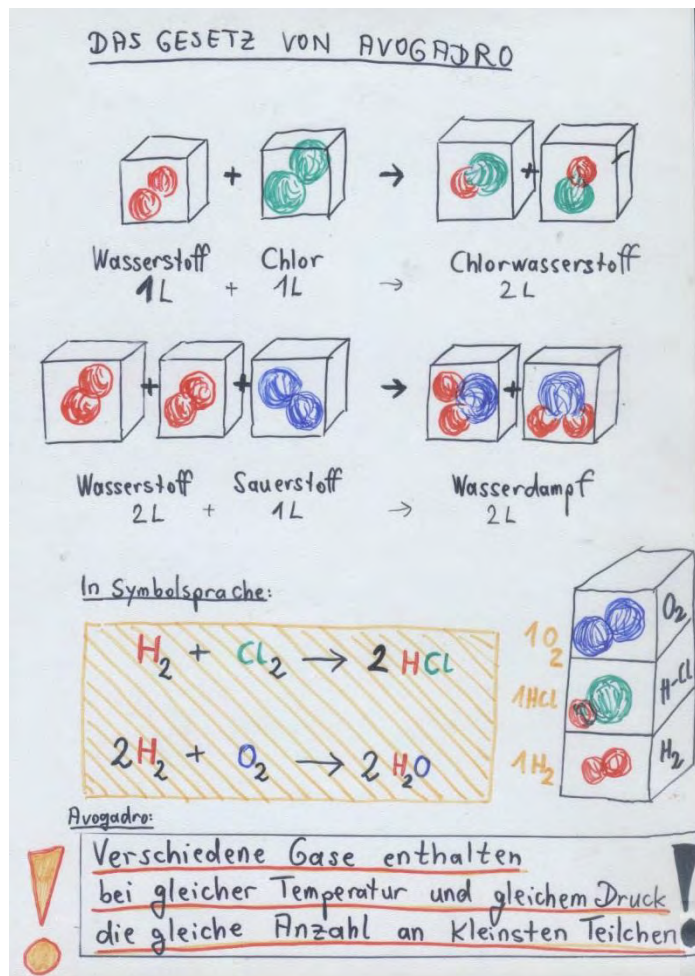 DAS GESETZ VON AVOGADRO
+ → +
Wasserstoff Chlor Chlorwasserstoff
1L + 1L → 2L
+ + → +
Wasserstoff Sauerstoff Wasserdampf
2L + 1L → 2L
In Symbolsprache:
H₂ + Cl₂ → 2 HCl
2H₂ + O₂ → 2 H₂O
1O₂ O₂
1HCl H-Cl
1H₂ H₂
Avogadro:
! Verschiedene Gase enthalten !
bei gleicher Temperatur und gleichem Druck
die gleiche Anzahl an kleinsten Teilchen